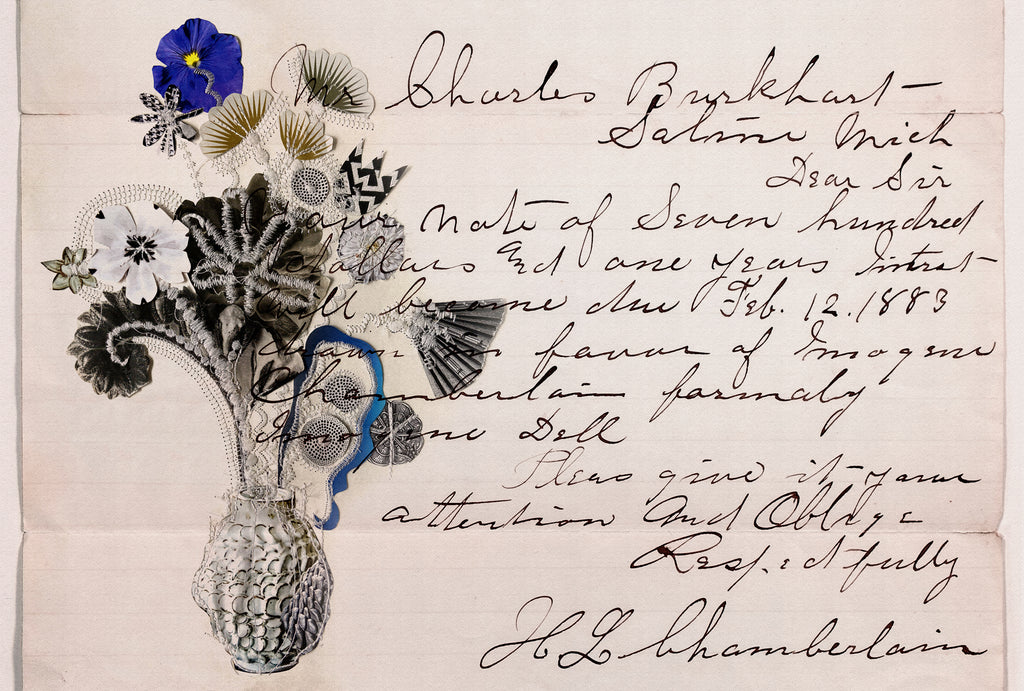 Mr Charles Burkhart
Saline Mich
Dear Sir
Your Note of Seven hundred
dollars and one years Intrest
will become due Feb. 12. 1883
drawn in favor of Imogene
Chamberlain formaly
Imogene Dell
Pleas give it your
attention And Oblige
Respectfully
H L Chamberlain